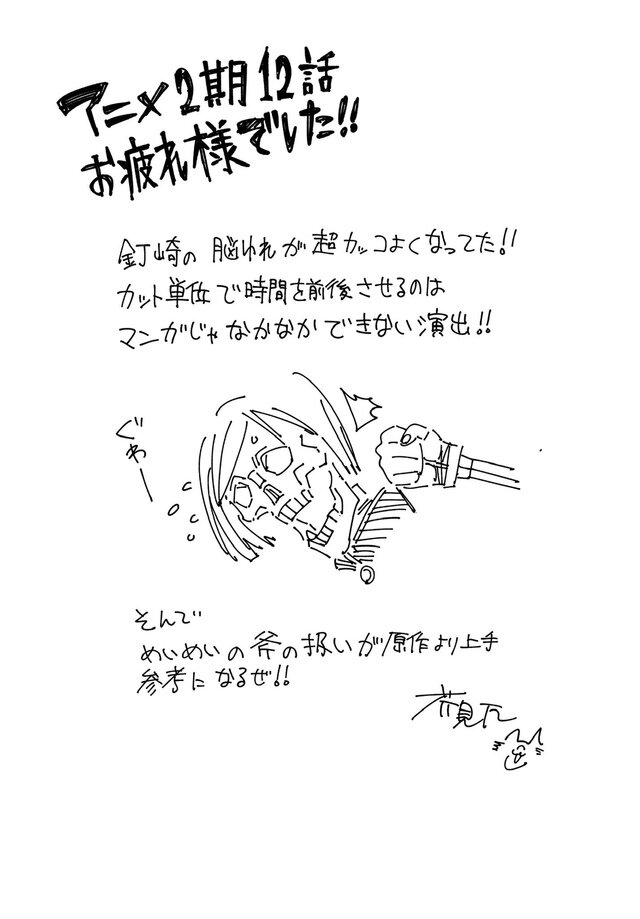 アニメ2期12話
お疲れ様でした!!
釘崎の脳ゆれが超カッコよくなってた!!
カット単位で時間を前後させるのは
マンガじゃなかなかできない演出!!
ぐわー
そんで
めいめいの斧の扱いが原作より上手
参考になるぜ!!
芥見下々